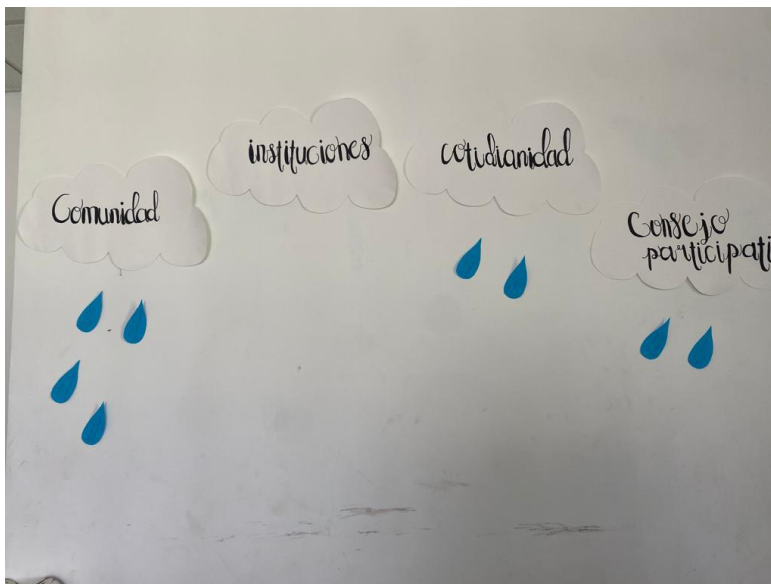 Comunidad
instituciones
cotidianidad
Consejo
participati